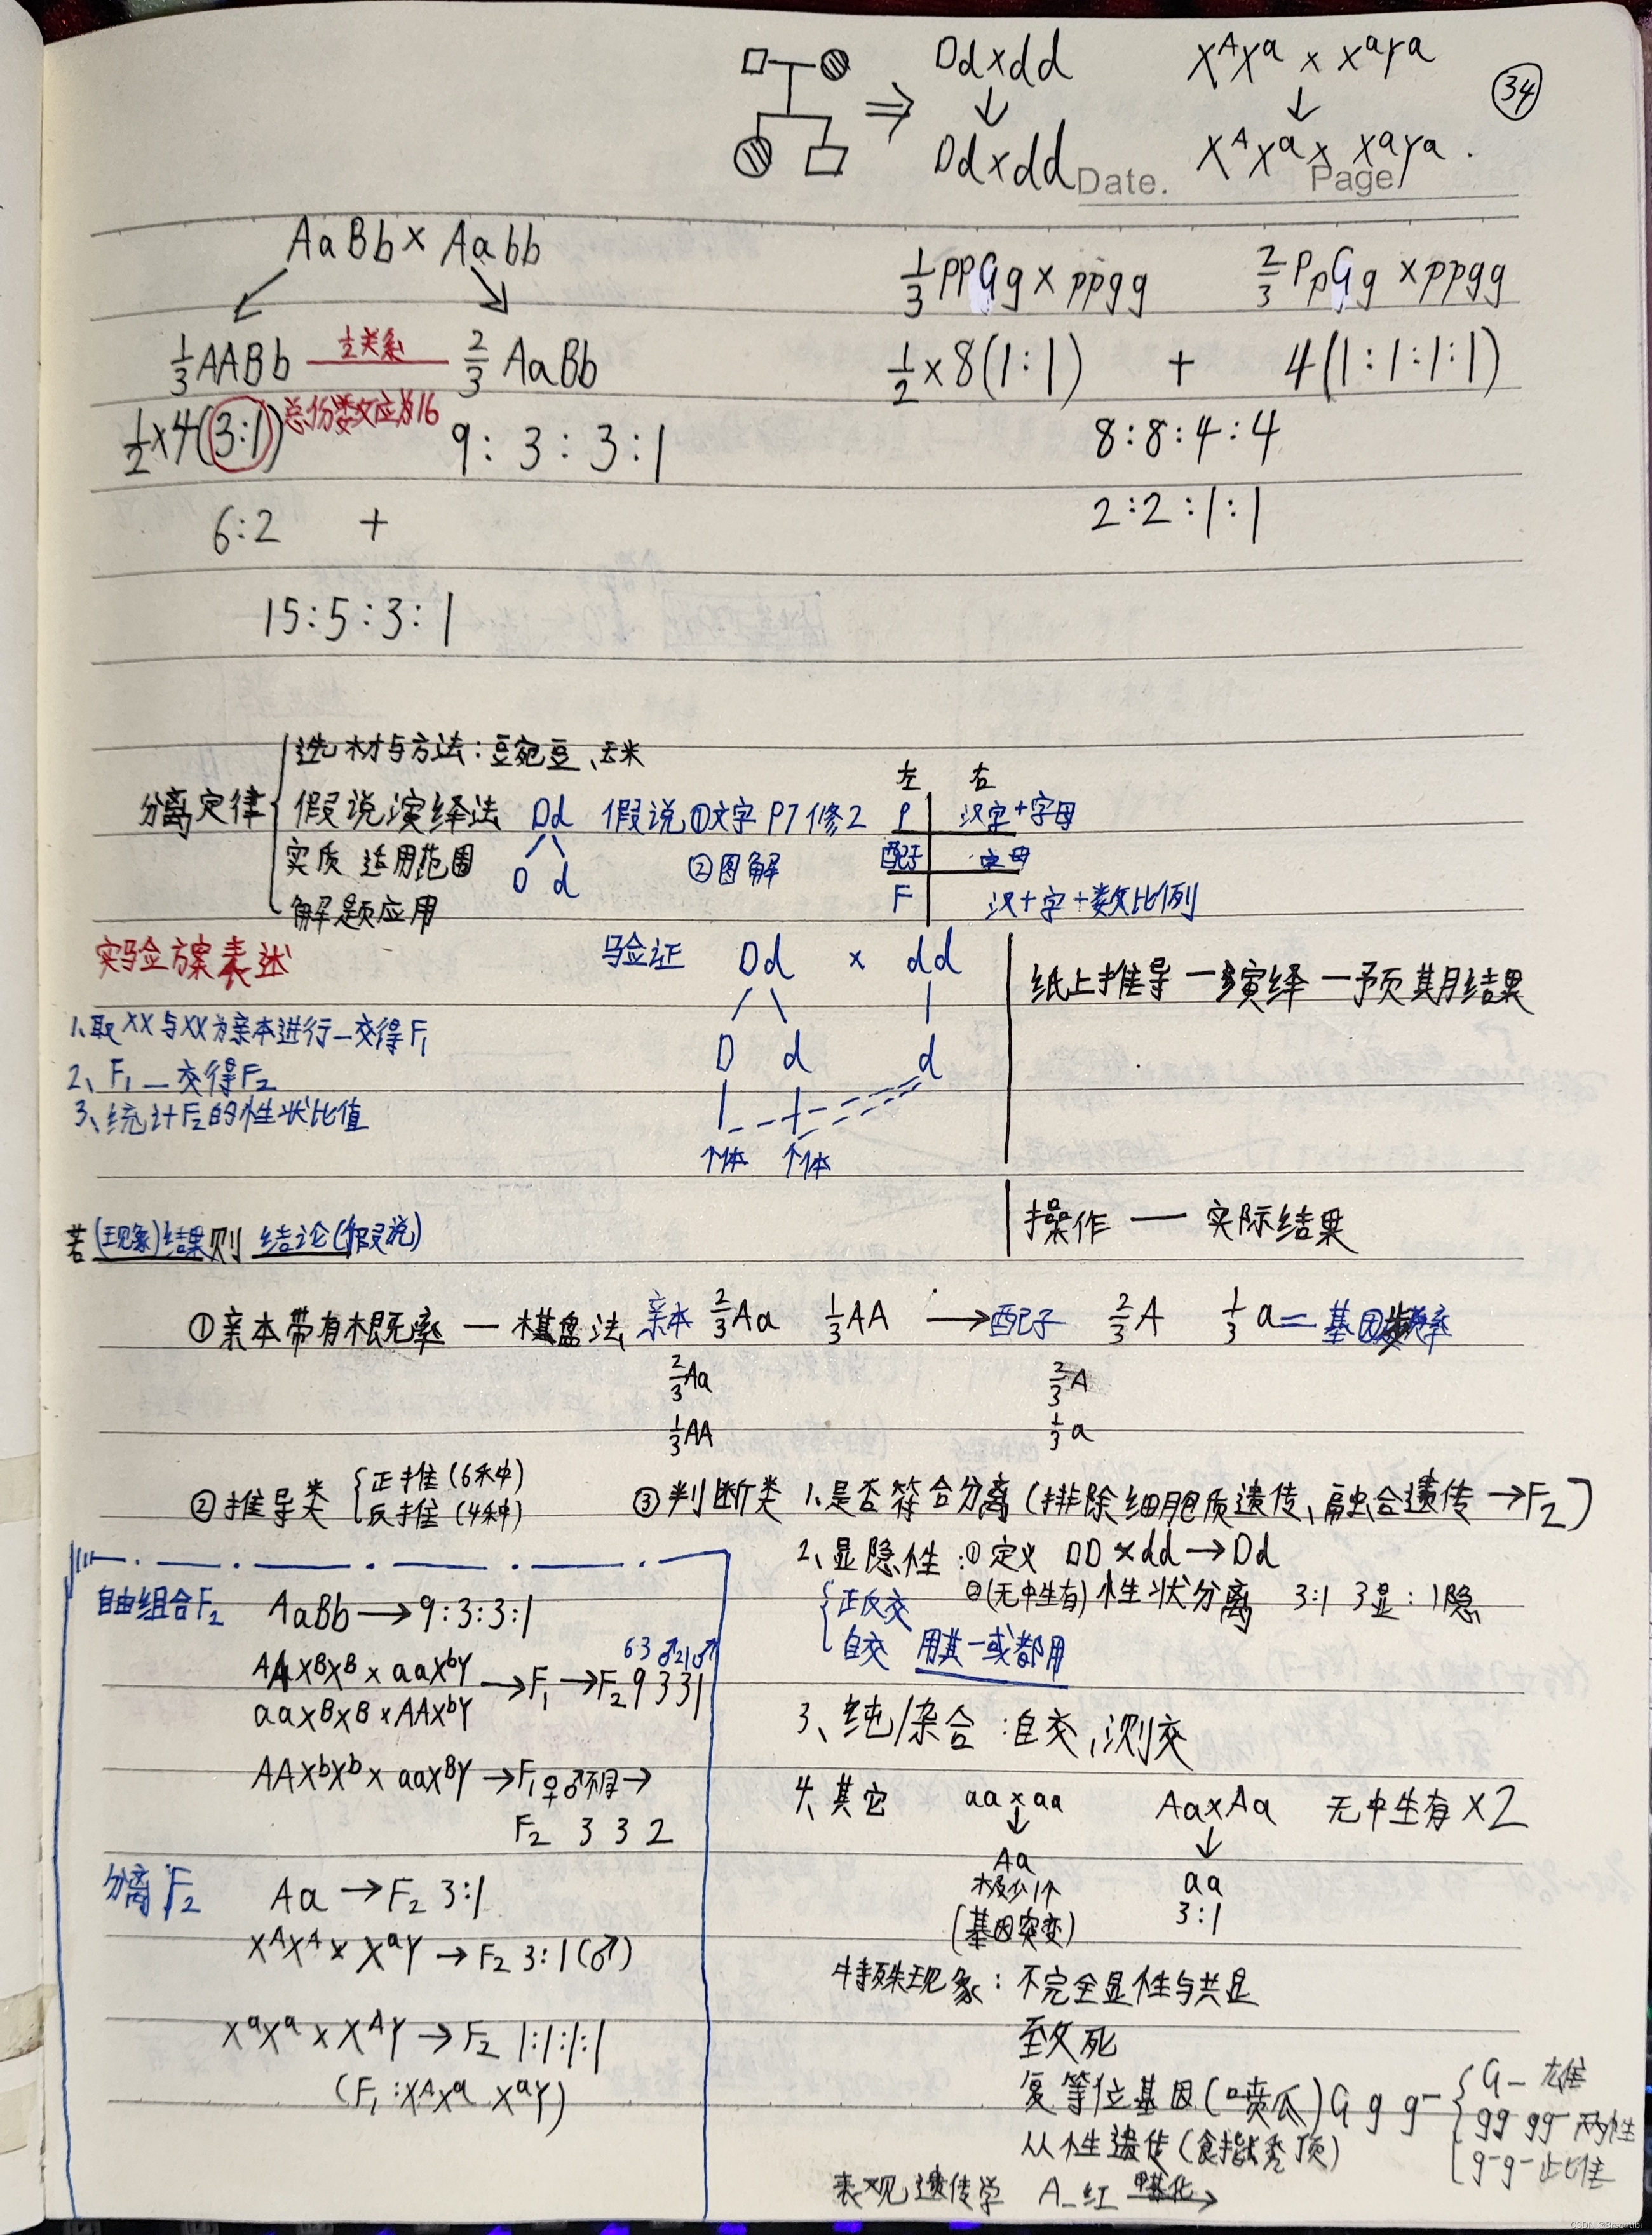 Dd×dd XᴬXᵃ × XᵃYᵃ
㉞
⇒ ↓ ↓
Dd×dd XᴬXᵃ × XᵃYᵃ
Date. Page
AaBb × Aabb
1/3 ppGg × ppgg 2/3 PpGg × ppgg
1/3 AABb 1/2关系 2/3 AaBb
1/2×8(1:1) + 4(1:1:1:1)
1/2×4(3:1) 总份数应为16 9:3:3:1
8:8:4:4
6:2 +
2:2:1:1
15:5:3:1
分离定律
选材与方法:豆豌豆、玉米
假说演绎法 Dd 假说①文字 P7修2
实质 适用范围 D d ②图解
解题应用
左 右
P 汉字+字母
配子 字母
F 汉+字+数比例
实验方案表达
1、取XX与XX为亲本进行_交得F₁
2、F₁_交得F₂
3、统计F₂的性状比值
验证 Dd × dd
D d d
个体 个体
纸上推导—演绎—预期结果
操作 — 实际结果
若(现象)结果则 结论(假说)
①亲本带有概率—棋盘法 亲本 2/3Aa 1/3AA →配子 2/3A 1/3a=基因频率
2/3Aa 2/3A
1/3AA 1/3a
②推导类 正推(6种)
反推(4种)
③判断类 1、是否符合分离(排除细胞质遗传、融合遗传→F₂)
2、显隐性:①定义 DD×dd→Dd
②(无中生有)性状分离 3:1 3显:1隐
正反交
自交 用其一或都用
3、纯/杂合:自交、测交
4、其它 aa×aa Aa×Aa 无中生有×2
↓ ↓
Aa aa
极少1个 3:1
(基因突变)
特殊现象:不完全显性与共显
致死
复等位基因(喷瓜)G g g⁻
G_ 雄
gg gg⁻ 两性
g⁻g⁻ 雌
从性遗传(食指秃顶)
表观遗传学 A_红 甲基化→
自由组合F₂ AaBb→9:3:3:1
AAXᴮXᴮ × aaXᵇY
aaXᴮXᴮ × AAXᵇY
→F₁→F₂ 9 3 3 1
63♂21♂
AAXᵇXᵇ × aaXᴮY →F₁♀♂不同→
F₂ 3 3 2
分离F₂ Aa →F₂ 3:1
XᴬXᴬ × XᵃY →F₂ 3:1(♂)
XᵃXᵃ × XᴬY →F₂ 1:1:1:1
(F₁:XᴬXᵃ XᵃY)